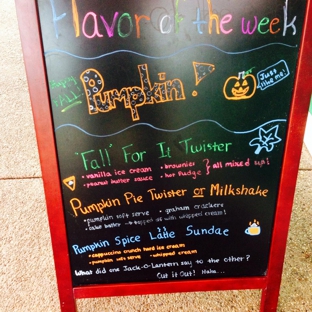 Flavor of the week
Happy Fall!
Pumpkin!
Just like me!
'Fall' For It Twister
• vanilla ice cream • brownies } all mixed up!
• peanut butter sauce • hot fudge
Pumpkin Pie Twister or Milkshake
• pumpkin soft serve • graham crackers
• cake batter → topped off with whipped cream!
Pumpkin Spice Latte Sundae
• cappuccino crunch hard ice cream
• pumpkin soft serve • whipped cream
What did one Jack-o-Lantern say to the other?
Cut it Out! Haha...